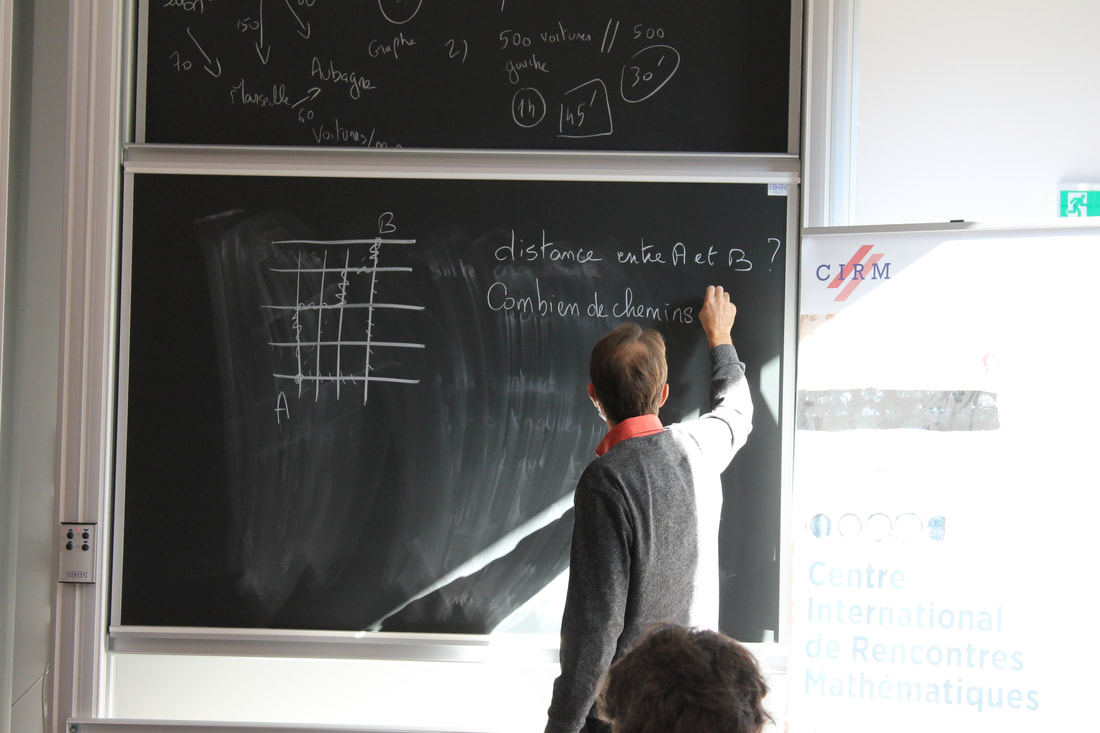 150
70
Marseille
Aubagne
60
Voitures/min
Graphe
2) 500 voitures // 500
gauche
1h 45' 30'
B
A
distance entre A et B ?
Combien de chemins
CIRM
Centre
International
de Rencontres
Mathématiques